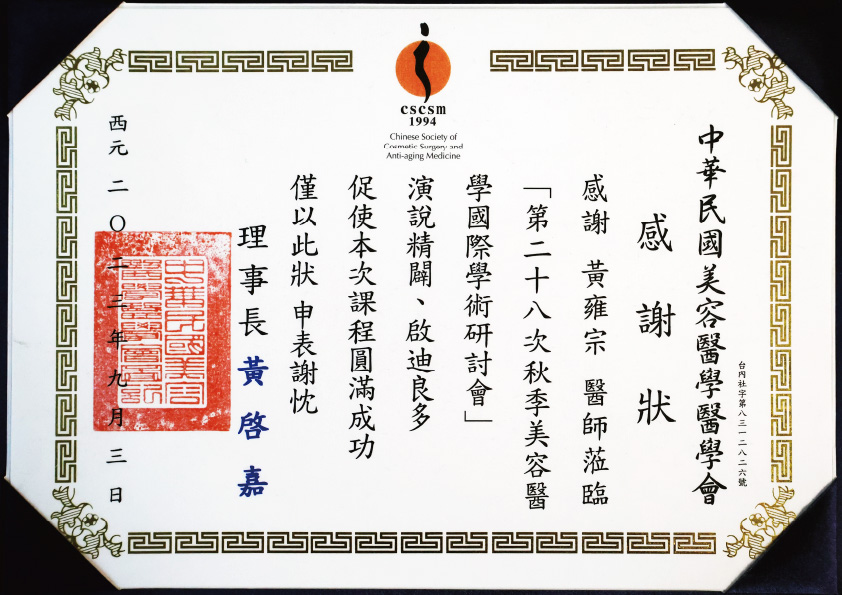 cscsm
1994
Chinese Society of
Cosmetic Surgery and
Anti-aging Medicine
中華民國美容醫學醫學會
台內社字第八三一二八二六號
感謝狀
感謝 黃雍宗 醫師蒞臨
「第二十八次秋季美容醫
學國際學術研討會」
演說精闢、啟迪良多
促使本次課程圓滿成功
僅以此狀 申表謝忱
理事長 黃啓嘉
西元二〇二三年九月三日